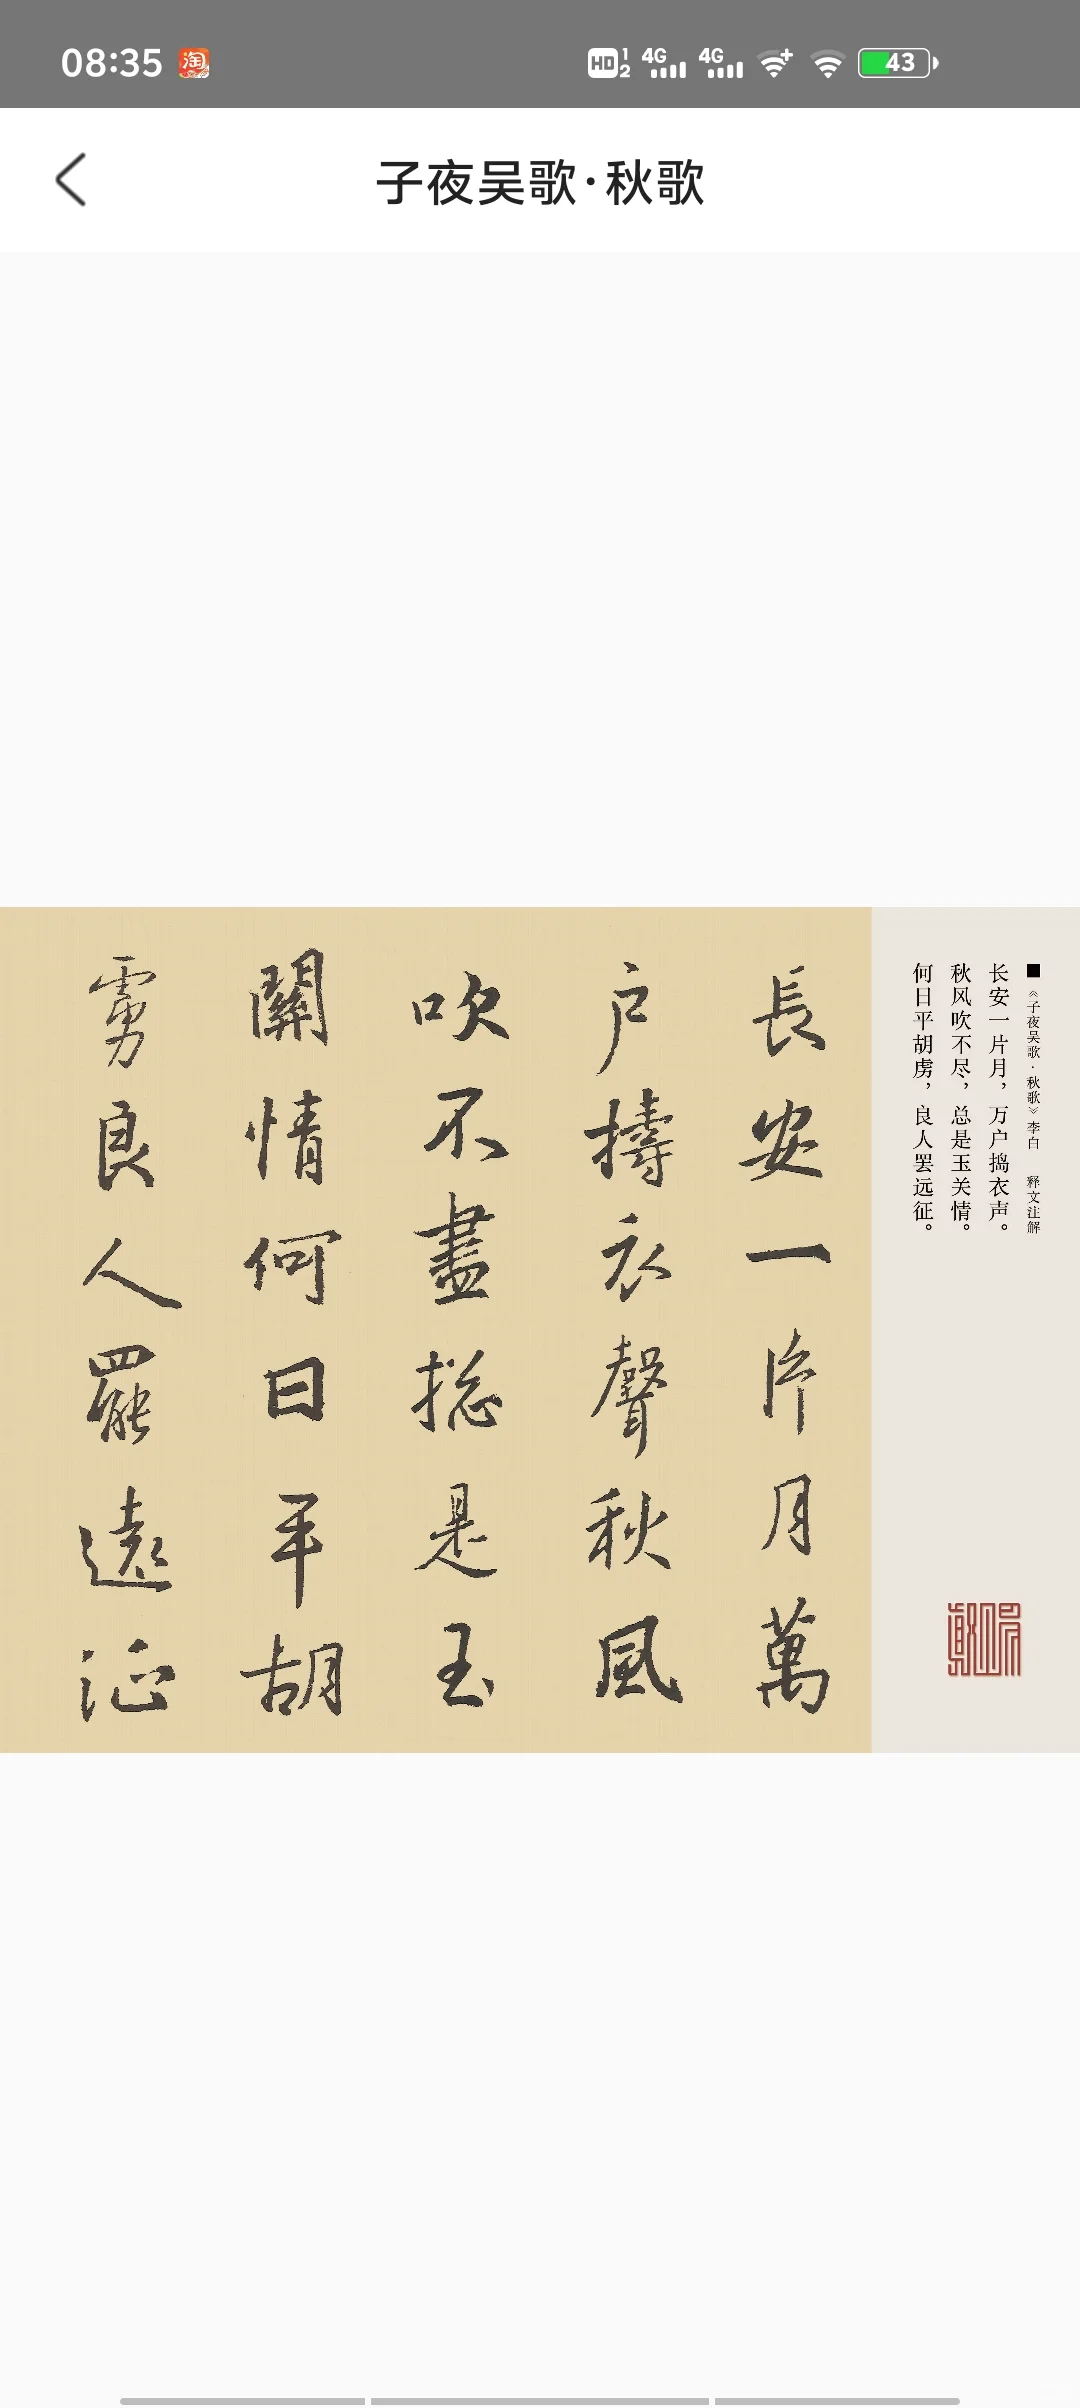 08:35 淘 HD 1 2 4G 4G 43
子夜吴歌·秋歌
■《子夜吴歌·秋歌》李白 释文注解
长安一片月，万户捣衣声。
秋风吹不尽，总是玉关情。
何日平胡虏，良人罢远征。
長安一片月萬
户擣衣聲秋風
吹不盡揔是玉
關情何日平胡
虜良人罷遠征